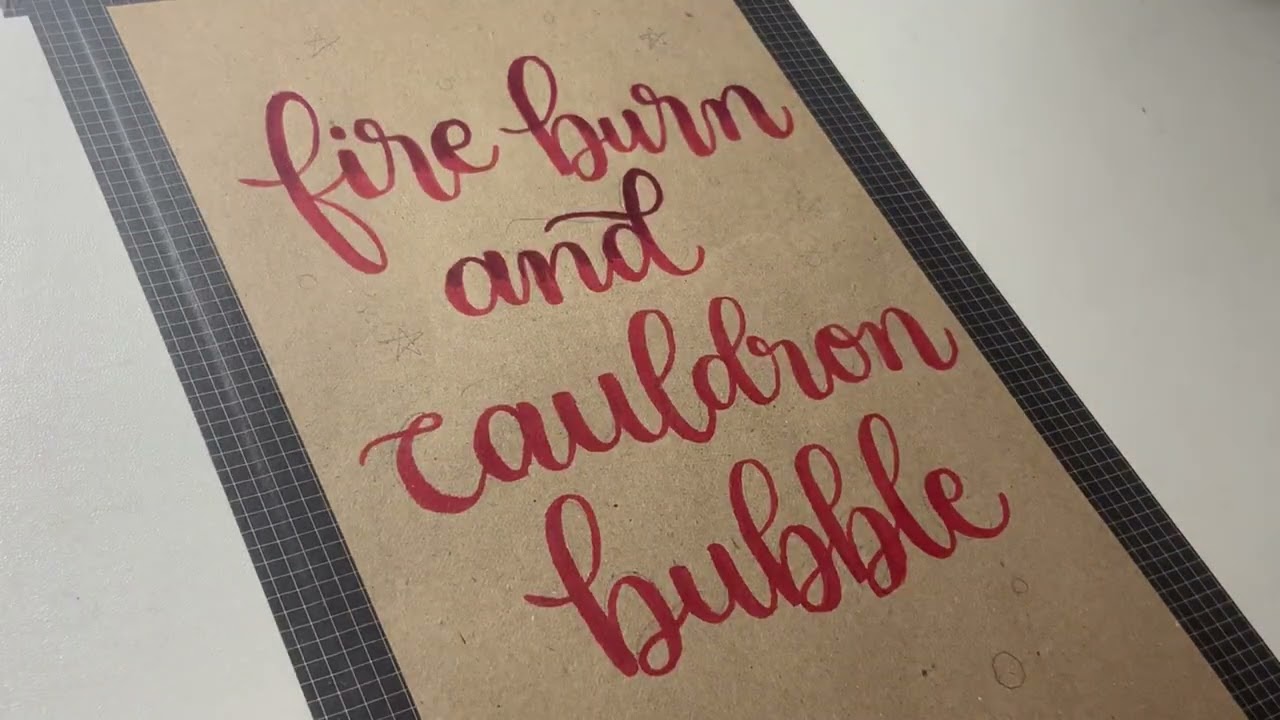 fire burn
and
cauldron
bubble